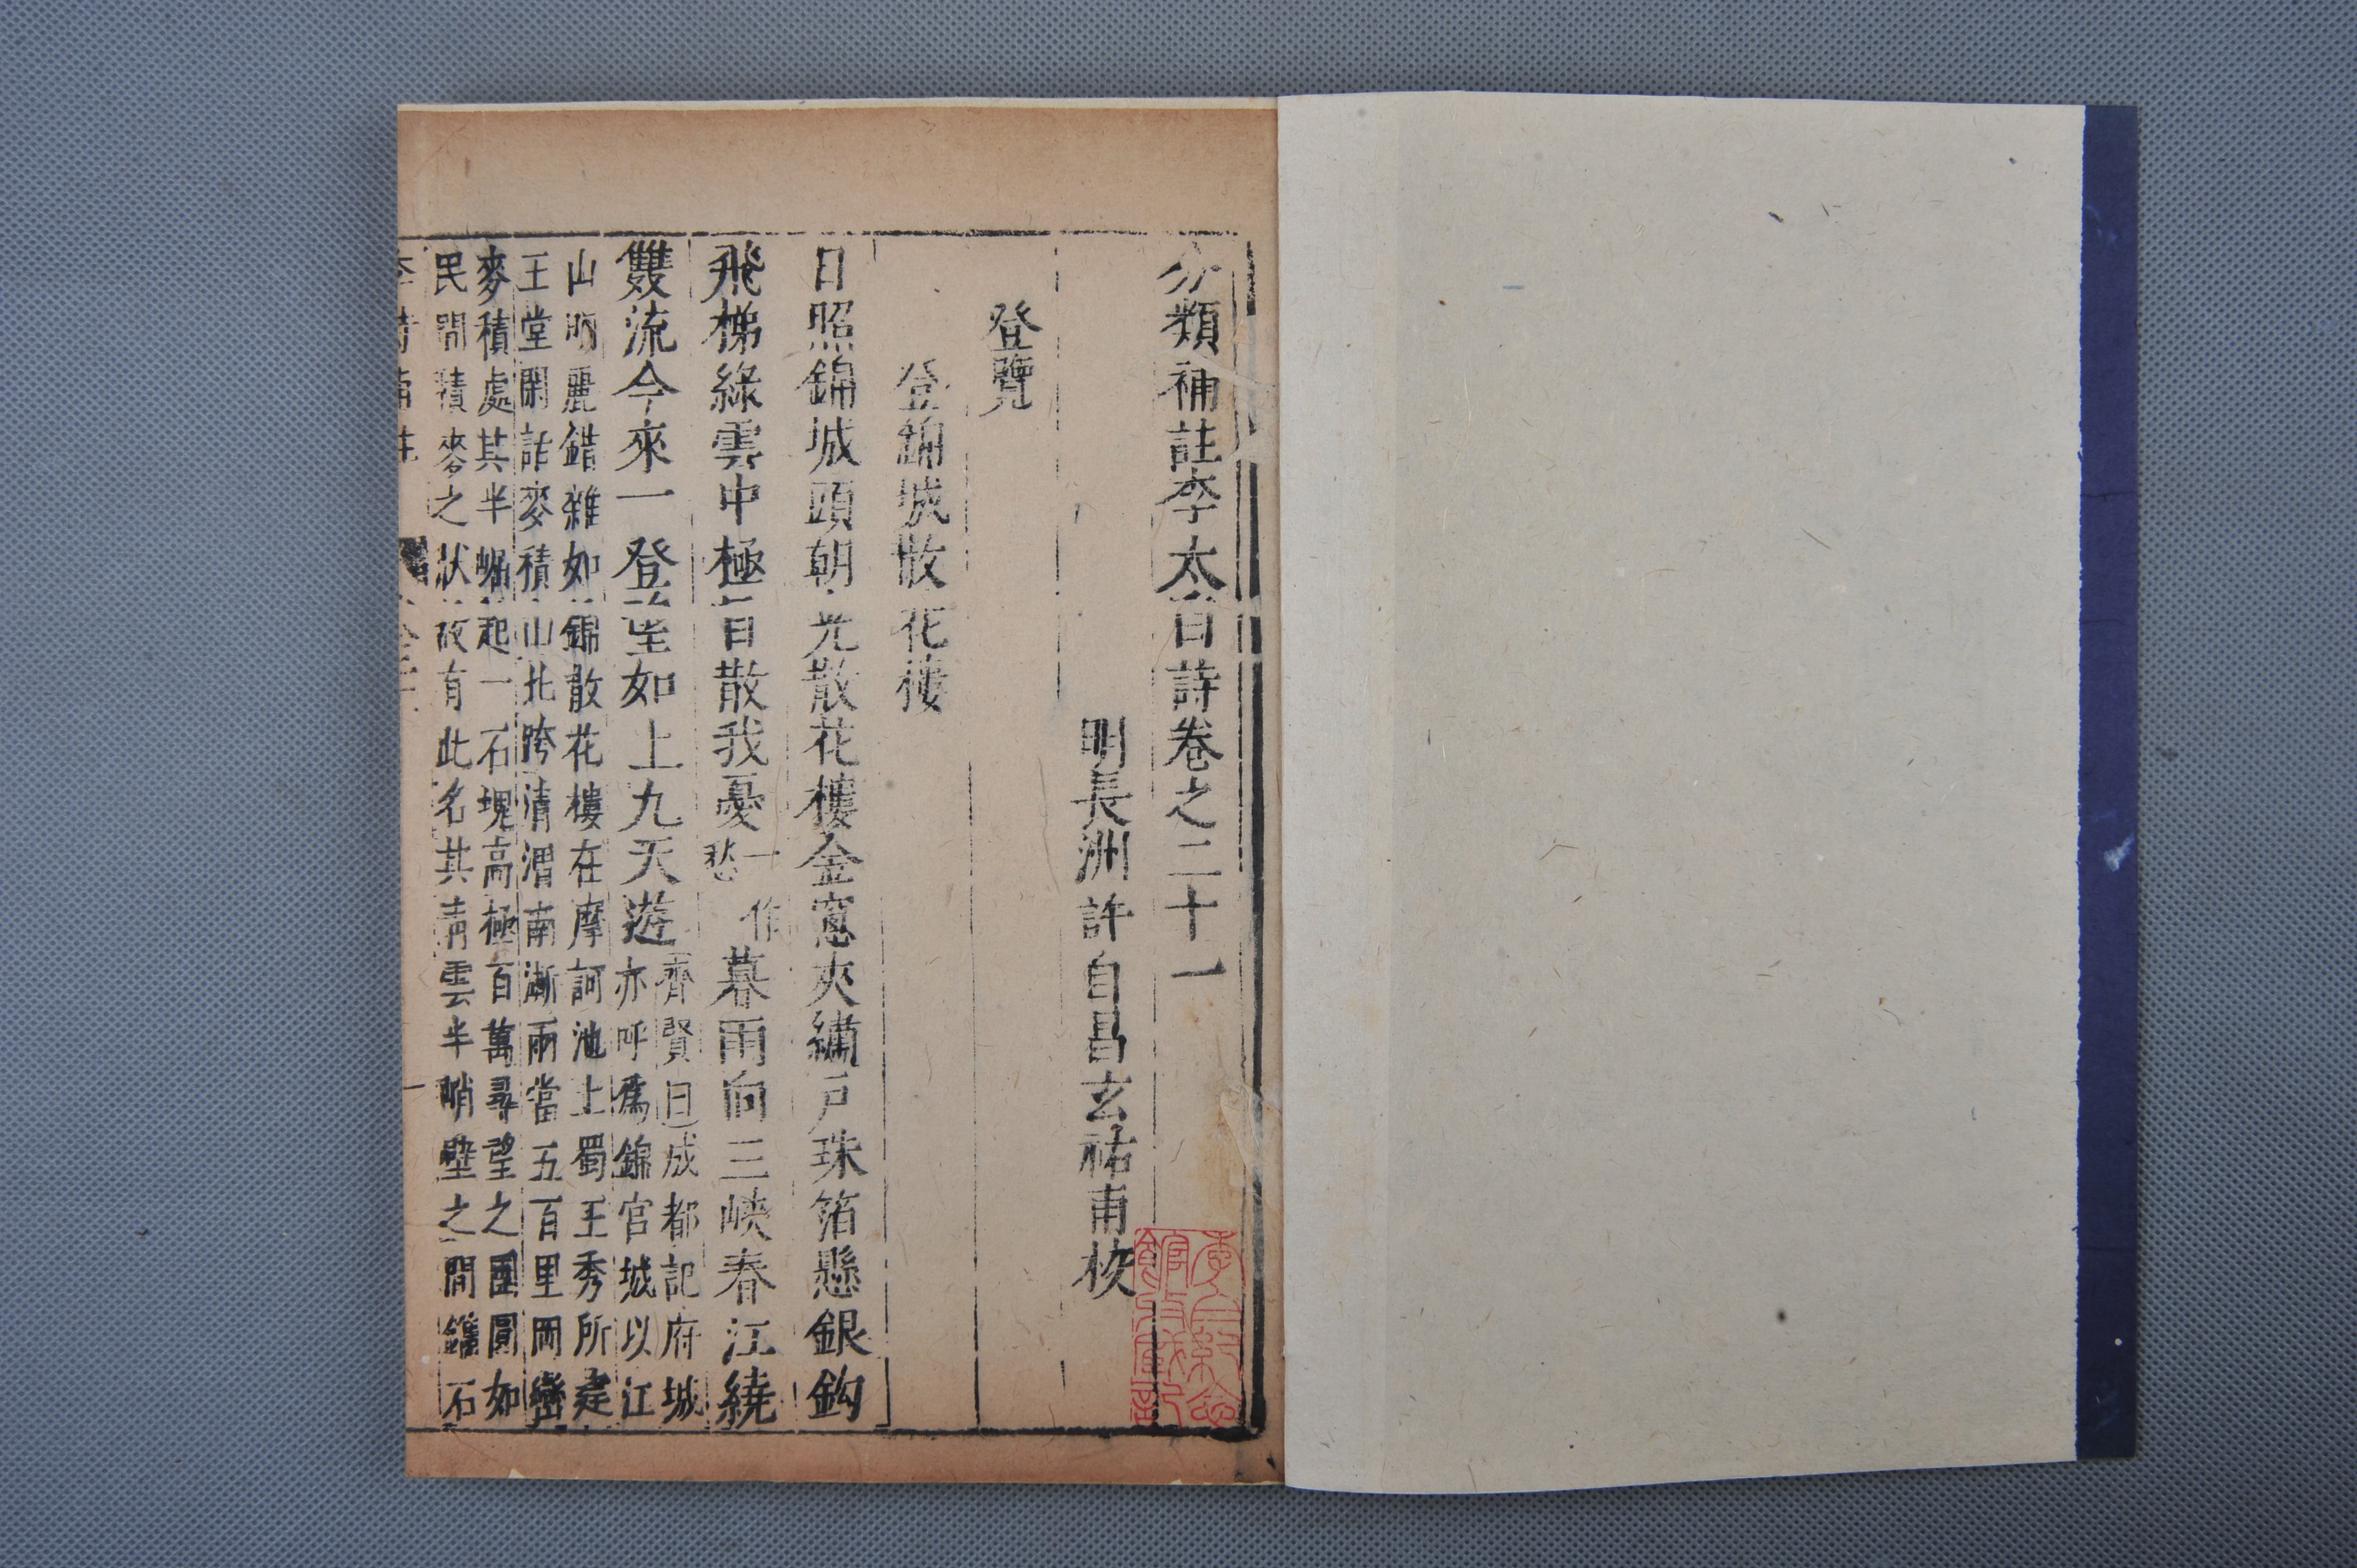 分類補註李太白詩卷之二十一
明長洲許自昌玄祐甫校
登覽
登錦城散花樓
日照錦城頭朝光散花樓金窓夾繡戶珠箔懸銀鈎
飛梯綠雲中極目散我憂一作愁暮雨向三峽春江繞
雙流今來一登望如上九天遊齊賢曰成都記府城
亦呼爲錦官城以江
山明麗錯雜如錦散花樓在摩訶池上蜀王秀所建
王堂閑話麥積山北跨清渭南漸兩當五百里岡巒
麥積處其半崛起一石塊高極百萬尋望之團圓如
民間積麥之狀故有此名其青雲半峭壁之間鑴石
李詩補註